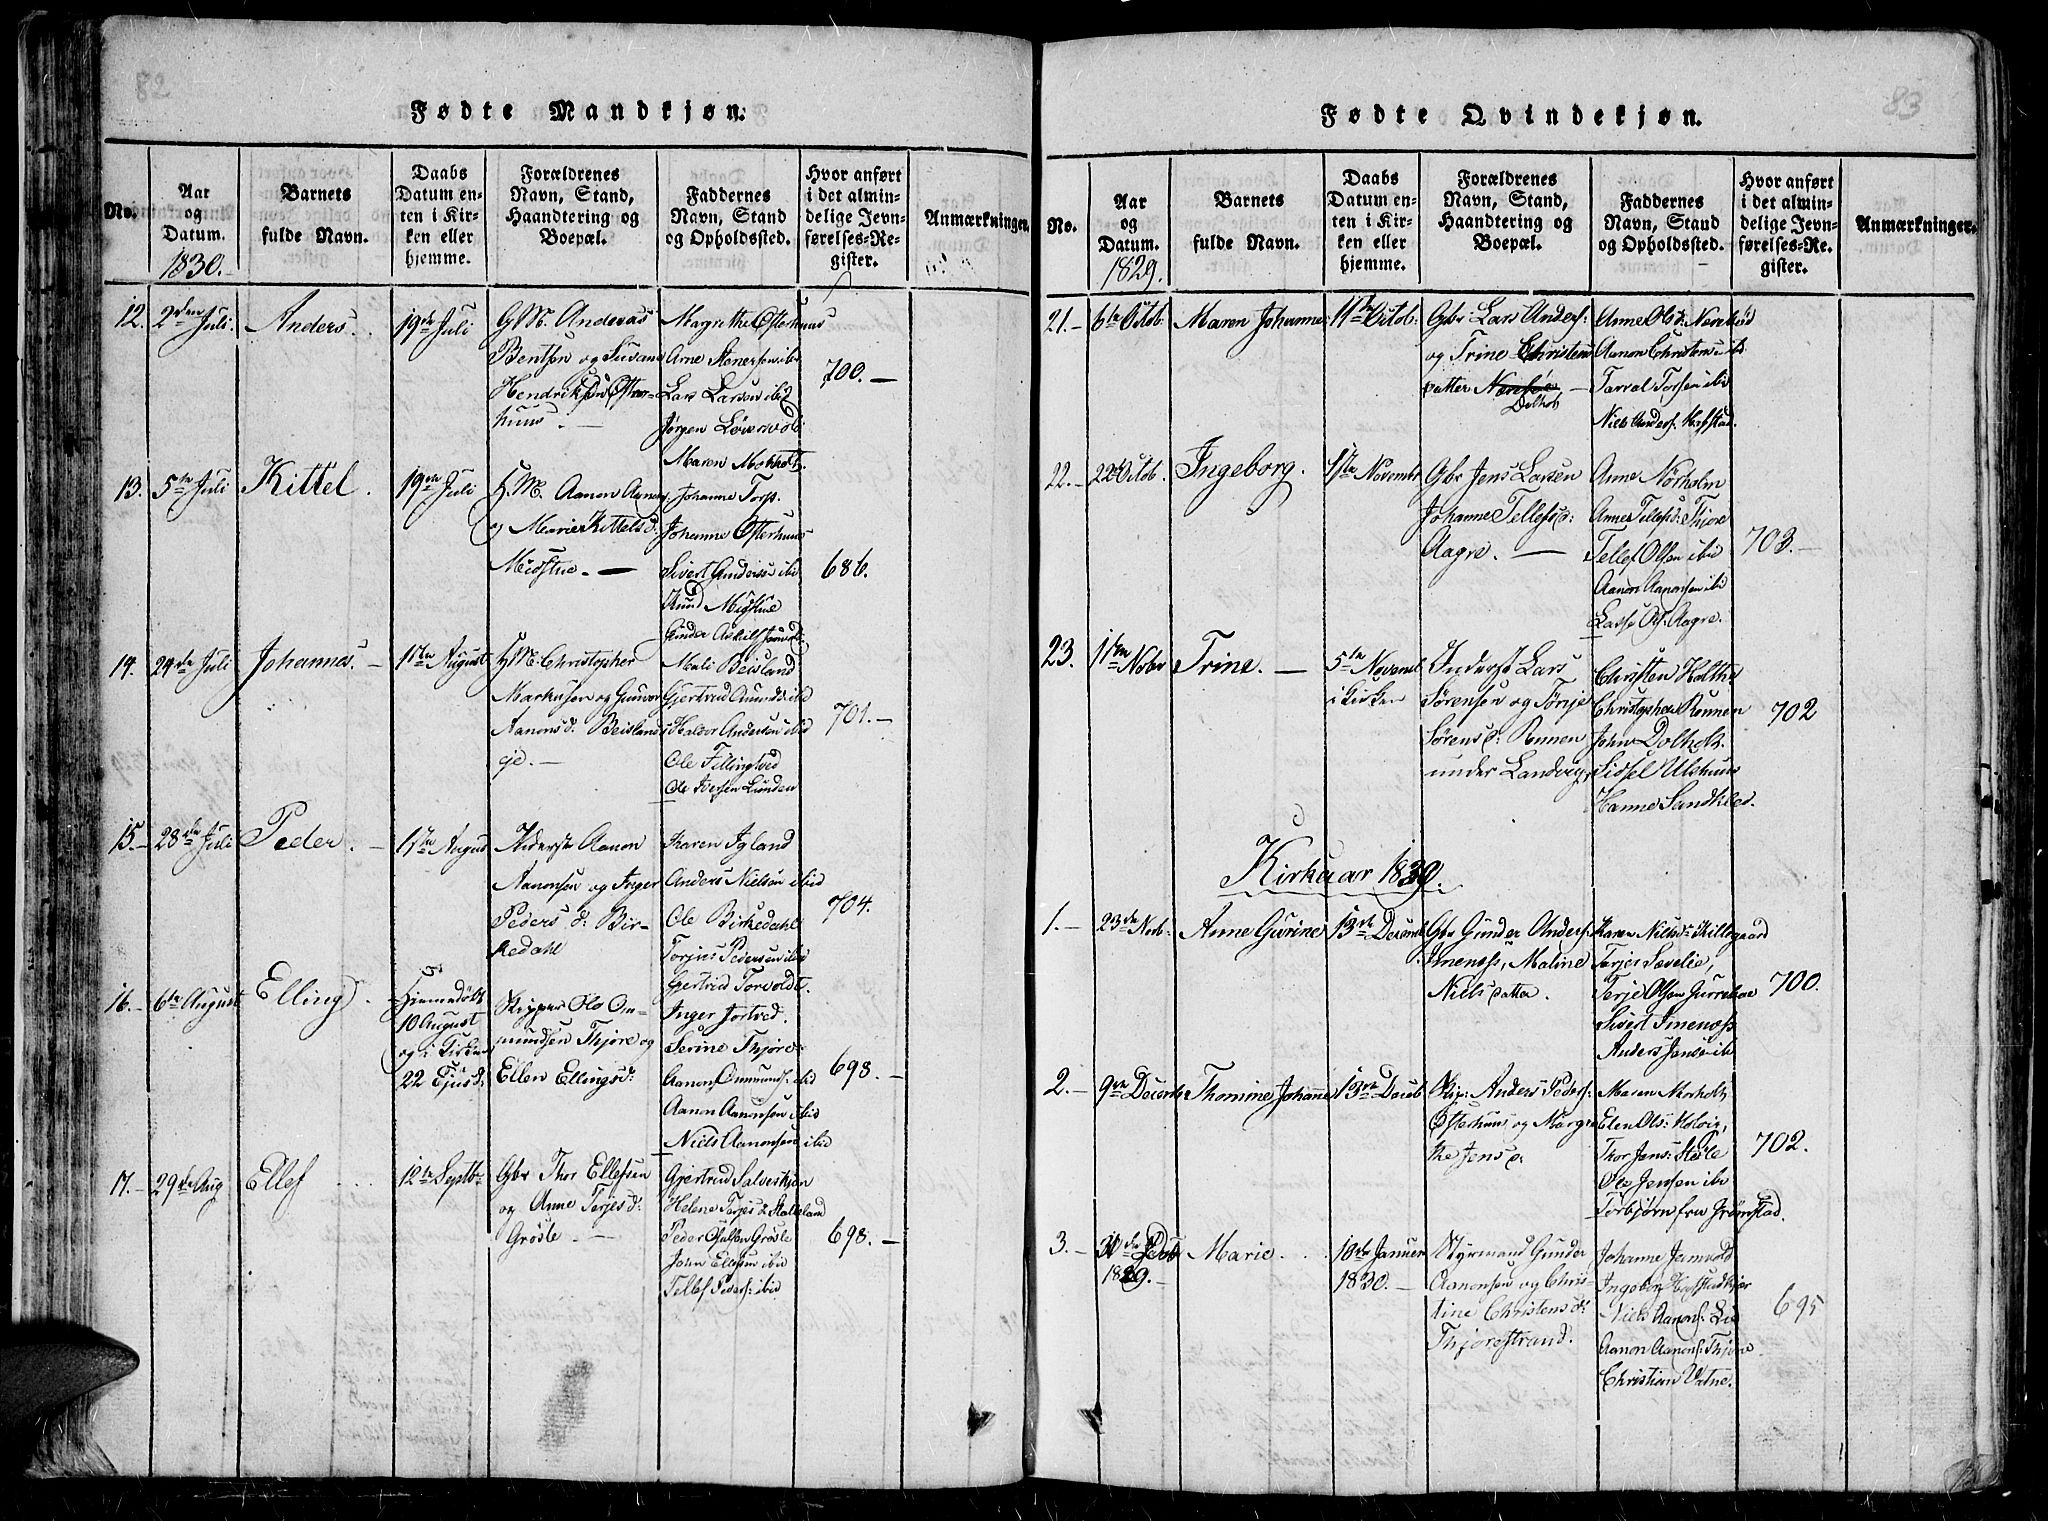 82
Fødte Mandkjøn.
No.
Aar
og
Datum.
1830.
Barnets
fulde Navn.
Daabs
Datum en-
ten i Kir-
ken eller
hjemme.
Forældrenes
Navn, Stand,
Haandtering og
Boepæl.
Faddernes
Navn, Stand
og Opholdssted.
Hvor anført
i det almin-
delige Jevn-
førelses-Re-
gister.
Anmærkninger.
12. 2den Juli.
Anders.
19de Juli
G M. Andreas
Bentsøn og Susanne
Hendriksdr Øster-
huus.
Margrethe Østerhuus
Arne Stenersen ibid
Lars Larsen ibid
Jørgen Løversvold
Maren Mokholt.
700.
13. 5te Juli
Kittel.
19de Juli
H. M. Aanon Aanons.
og Maria Kittelsd:
Midstue.
Johanne Torp.
Johanne Østerhuus
Sivert Gunders: ibid
Knud Midstue
Gunder Askilds: Jernvold.
686.
14. 24de Juli
Johannes.
1ste August
H M. Christopher
Markusen og Gunvor
Aanonsd: Beisland
eje.
Mali Beisland
Gjertrud Omundsd: ibid
Halvor Andersen ibid
Ole Fellingtved
Ole Iversen Lunden
701.
15. 28de Juli
Peder.
1ste August
Inderste Aanon
Aanonsen og Inger
Peders d: Bir-
kedahl
Karen Igland
Anders Nielsen ibid
Ole Birkedahl
Torjus Pedersen ibid
Gjertrud Torvolds.
704.
16. 6te August
Elling.
Hjemmedøbt
10 August
og i Kirken
22 Ejusd:
Skipper Ole Om-
mundsen Thjøre og
Ellen Ellingsd:
Inger Jortved.
Serine Thjøre
Aanon Ommunds. ibid
Aanon Aanonsen ibid
Niels Aanonsen ibid
698.
17. 29de Aug
Ellef
12te Septb:
Gbr Thor Ellefsen
og Anne Terjes d:
Grøsle
Gjertrud Salveskjøn
Helene Terjes d. Stalleland
Peder Olsen Grøsle
John Ellefsen ibid
Tellef Peders: ibid
698.
83
Fødte Qvindekjøn.
No.
Aar
og
Datum.
1829.
Barnets
fulde Navn.
Daabs
Datum en-
ten i Kir-
ken eller
hjemme.
Forældrenes
Navn, Stand,
Haandtering og
Boepæl.
Faddernes
Navn, Stand
og Opholdssted.
Hvor anført
i det almin-
delige Jevn-
førelses-Re-
gister.
Anmærkninger.
21. 6te Octob.
Maren Johanne
11te Octob:
Gbr Lars Anders.
og Trine Christens
datter
Dolholt
Anne Olsd: Nørebød
Aanon Christens: ibid
Tarral Torsen ibid
Niels Anders. Hafstad.
22. 22de Octob.
Ingeborg.
1ste November
Gbr Jens Larsen
Johanne Tellefsd:
Aagre.
Anne Nørholm
Anne Tellefsd: Thjore
Tellef Olsen ibid
Aanon Aanonsen ibid
Lasse Ols. Aagre.
703.
23. 1ste Nobr
Trine.
5te Novemb
i kirken
Inderst Lars
Sørensen og Torje
Sørensd: Rønnen
under Landvig
Christen Holthe
Christopher Rønnen
John Dolholt.
Sidsel Ulehuus
Hanne Sandkled.
702
Kirkuar 1830.
1. 23de Novb.
Anne Gurine
13de Decemb
Gbr Gunder Anders.
Imenæss, Maline
Niels datter.
Karen Nielsd: Killegaard
Terjes Sævelie,
Terje Olsen
Sivert Imenæss
Anders Jens: ibid
700.
2. 9de Decemb
Thomine Johanne
13de Decemb
Skip: Anders Peders:
Østerhuus og Margre
the Jens d.
Maren Morholt
Elen Ols: Holvig,
Thor Jens: Støle
Ole Jensen ibid
Torbjørn fra Grømstad.
702.
3. 30de Decb
1829.
Marie
10de Januer
1830.
Styrmand Gunder
Aanonsen og Chris-
tine Christens d:
Thjorestrand.
Johanne Jernvold
Ingeborg Hafstadkjær
Niels Aanons. Lie
Aanon Aanons: Thjore
Christian Vatne.
695